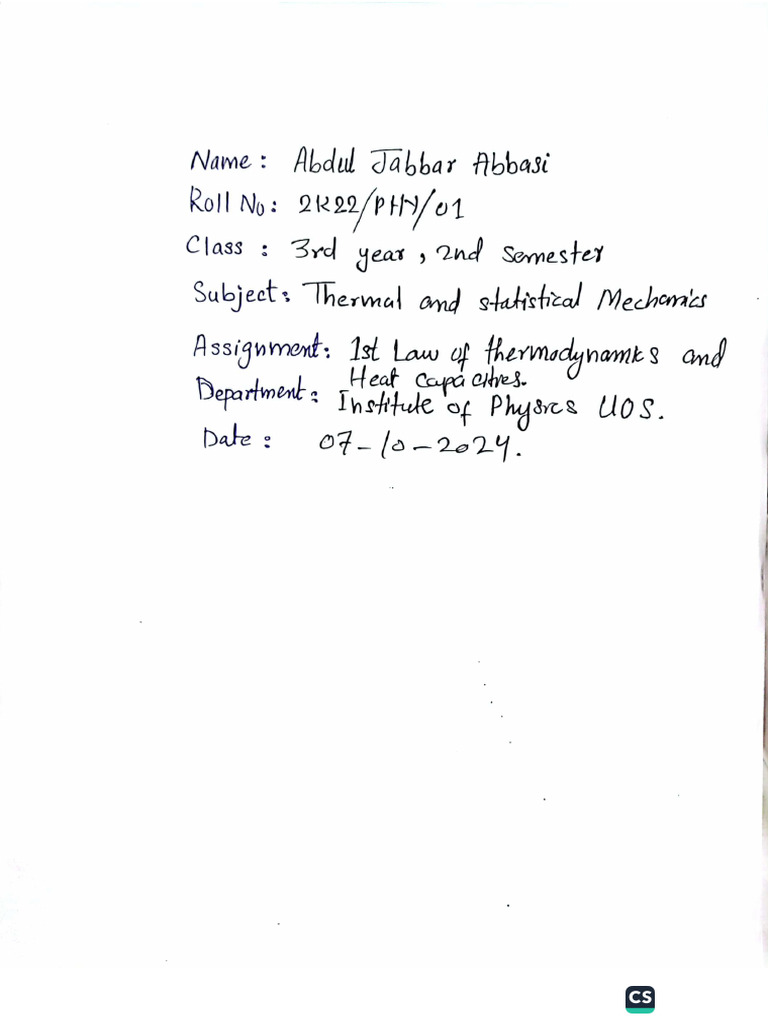 Name: Abdul Jabbar Abbasi
Roll No: 2K22/PHY/01
Class: 3rd year, 2nd semester
Subject: Thermal and statistical Mechanics
Assignment: 1st Law of thermodynamics and
Heat capacities.
Department: Institute of Physics UOS.
Date: 07-10-2024.
CS